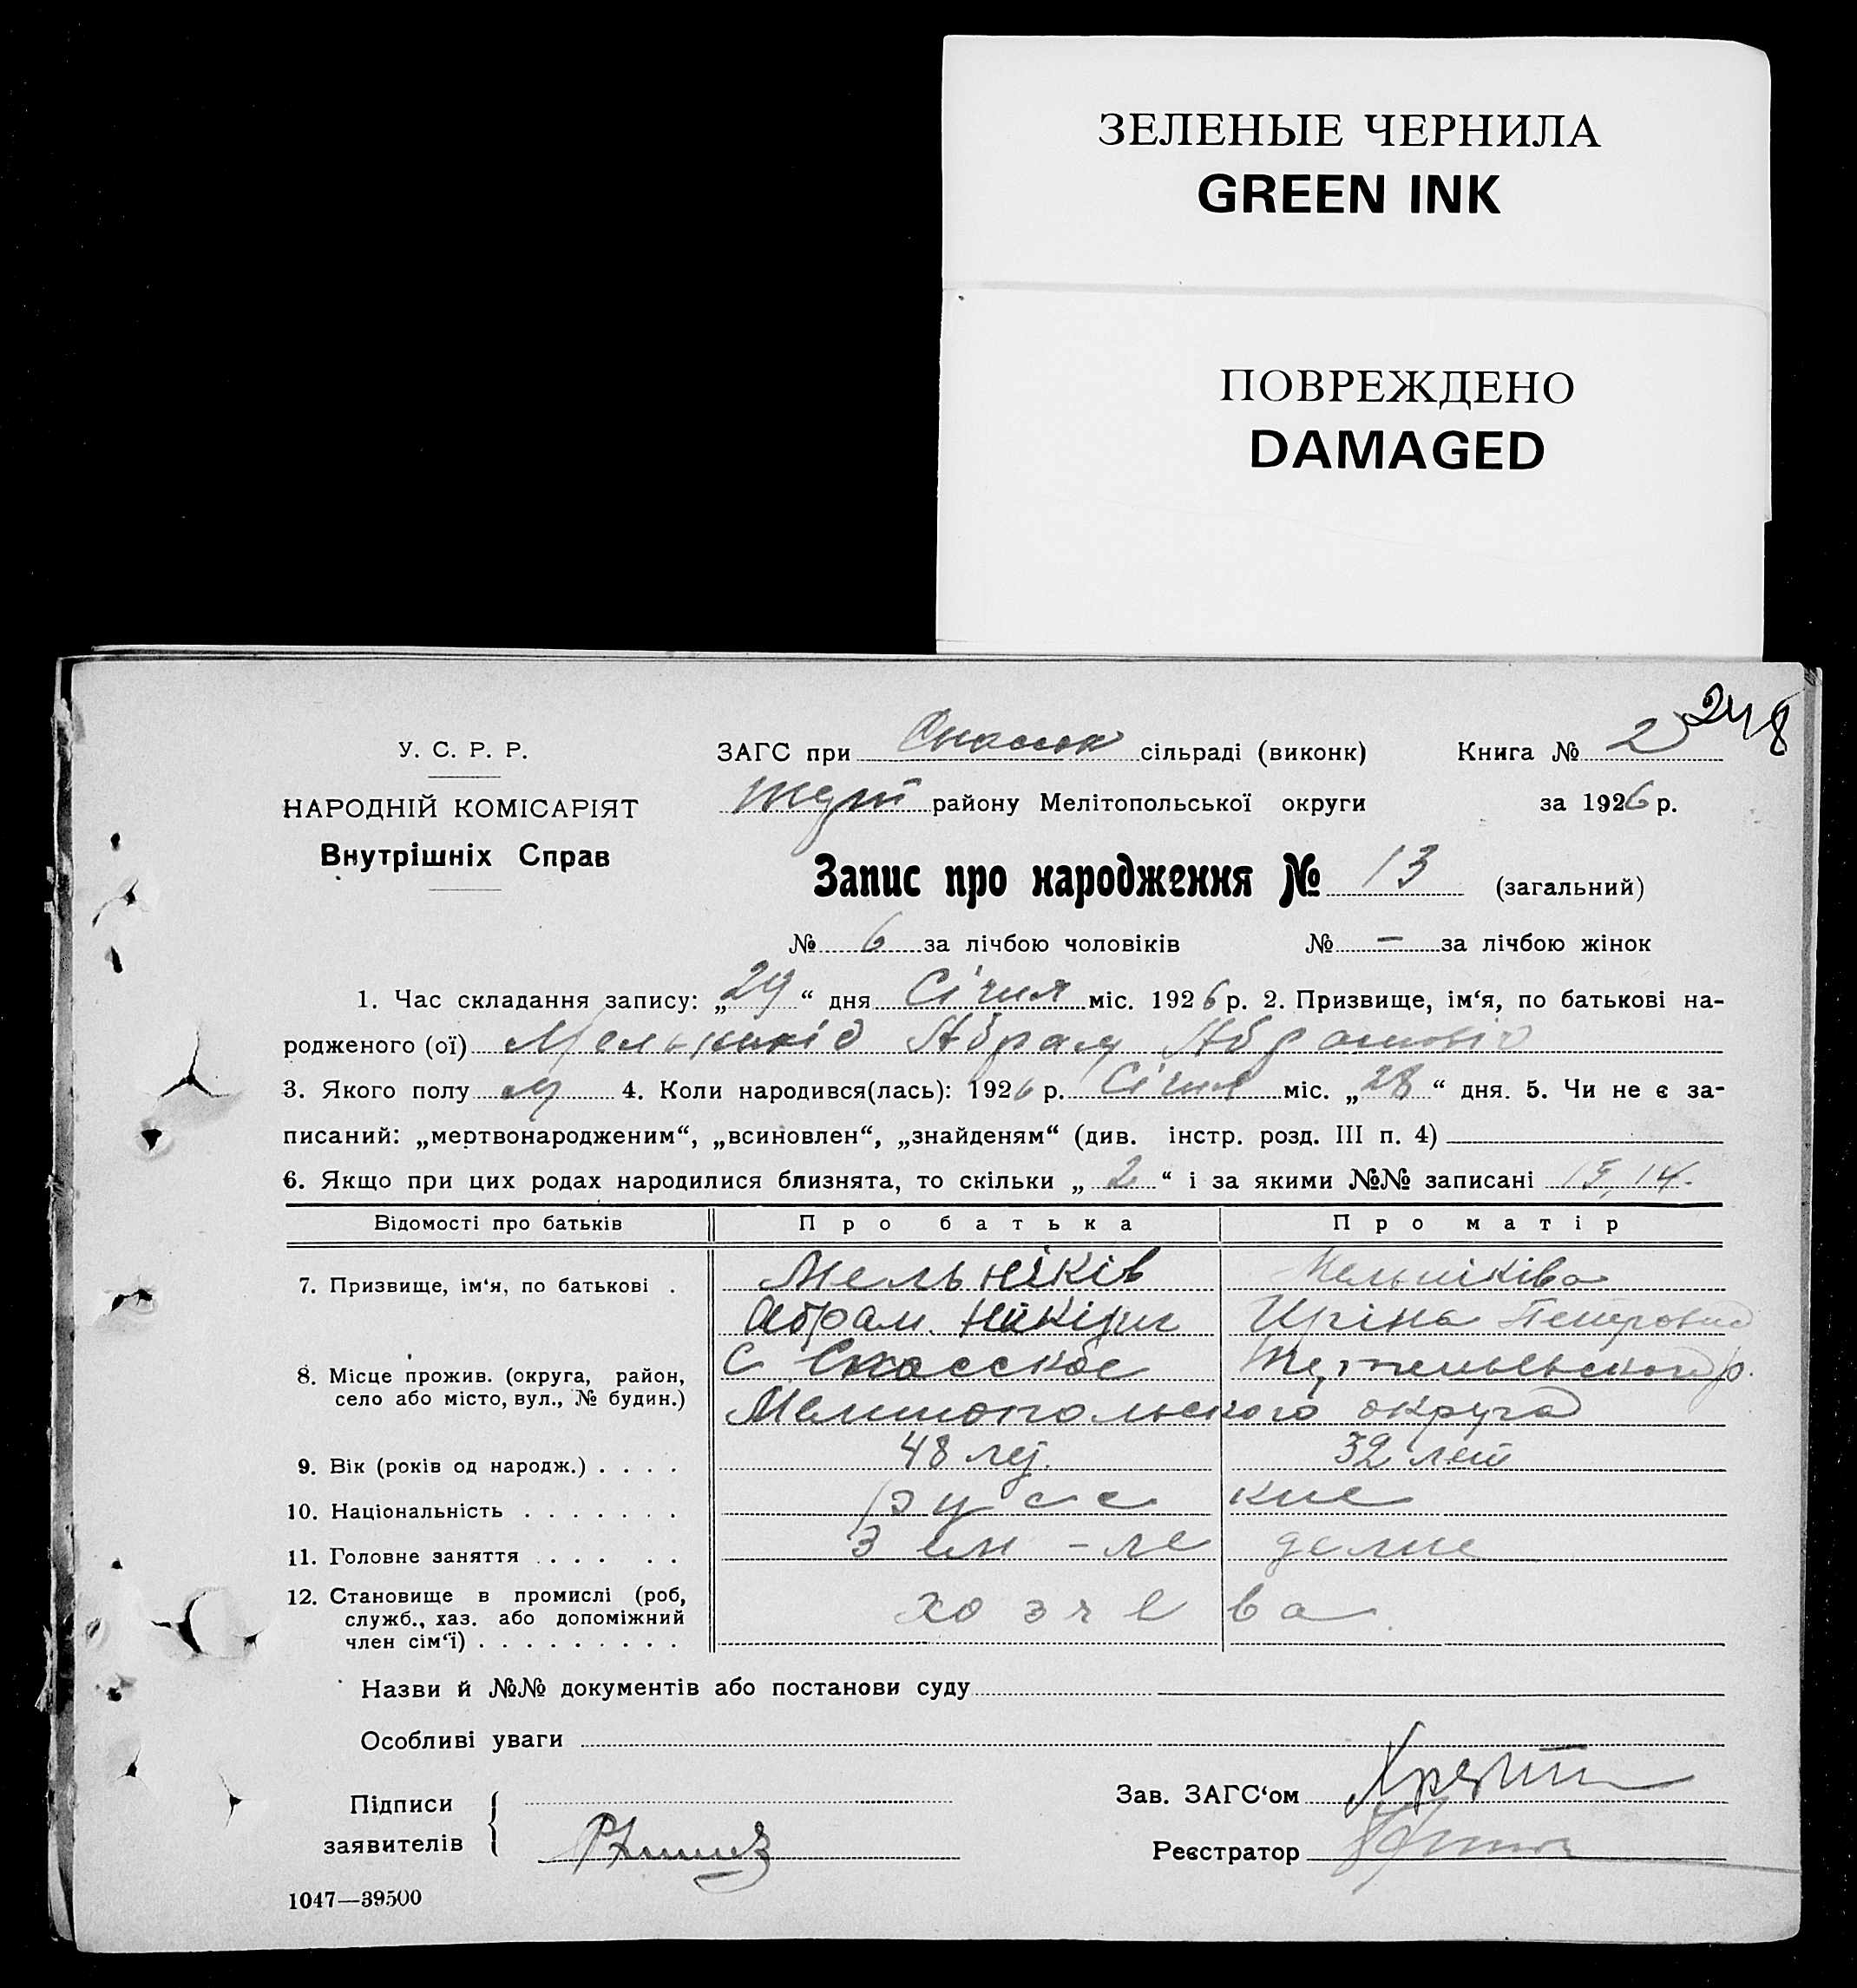 ЗЕЛЕНЫЕ ЧЕРНИЛА
GREEN INK
ПОВРЕЖДЕНО
DAMAGED
248
У. С. Р. Р.
НАРОДНІЙ КОМІСАРІЯТ
Внутрішніх Справ
ЗАГС при сільраді (виконк) Книга № 2
району Мелітопольської округи за 1926 р.
Запис про народження № 13 (загальний)
№ 6 за лічбою чоловіків № — за лічбою жінок
1. Час складання запису: „29“ дня Січня міс. 1926 р. 2. Призвище, ім‘я, по батькові на-
родженого (ої) Мельників Абрам Абрамовіч
3. Якого полу м 4. Коли народився(лась): 1926 р. Січня міс. „28“ дня. 5. Чи не є за-
писаний: „мертвонародженим“, „всиновлен“, „знайденям“ (див. інстр. розд. III п. 4)
6. Якщо при цих родах народилися близнята, то скільки „2“ і за якими №№ записані 13, 14.
Відомості про батьків Про батька Про матір
7. Призвище, ім‘я, по батькові . Мельніків Мельніківа
Абрам Нікіт Иріна Петровна
8. Місце прожив. (округа, район, С
село або місто, вул., № будин.) Мелитопольского округа
9. Вік (років од народж.) . . . . 48 лет. 32 лет
10. Національність . . . . . . . русские
11. Головне заняття . . . . . . Зем-леделие
12. Становище в промислі (роб, хозяева
служб., хаз. або допоміжний
член сім‘ї) . . . . . . . . .
Назви й №№ документів або постанови суду
Особливі уваги
Підписи
заявителів
Зав. ЗАГС‘ом
Реєстратор
1047—39500